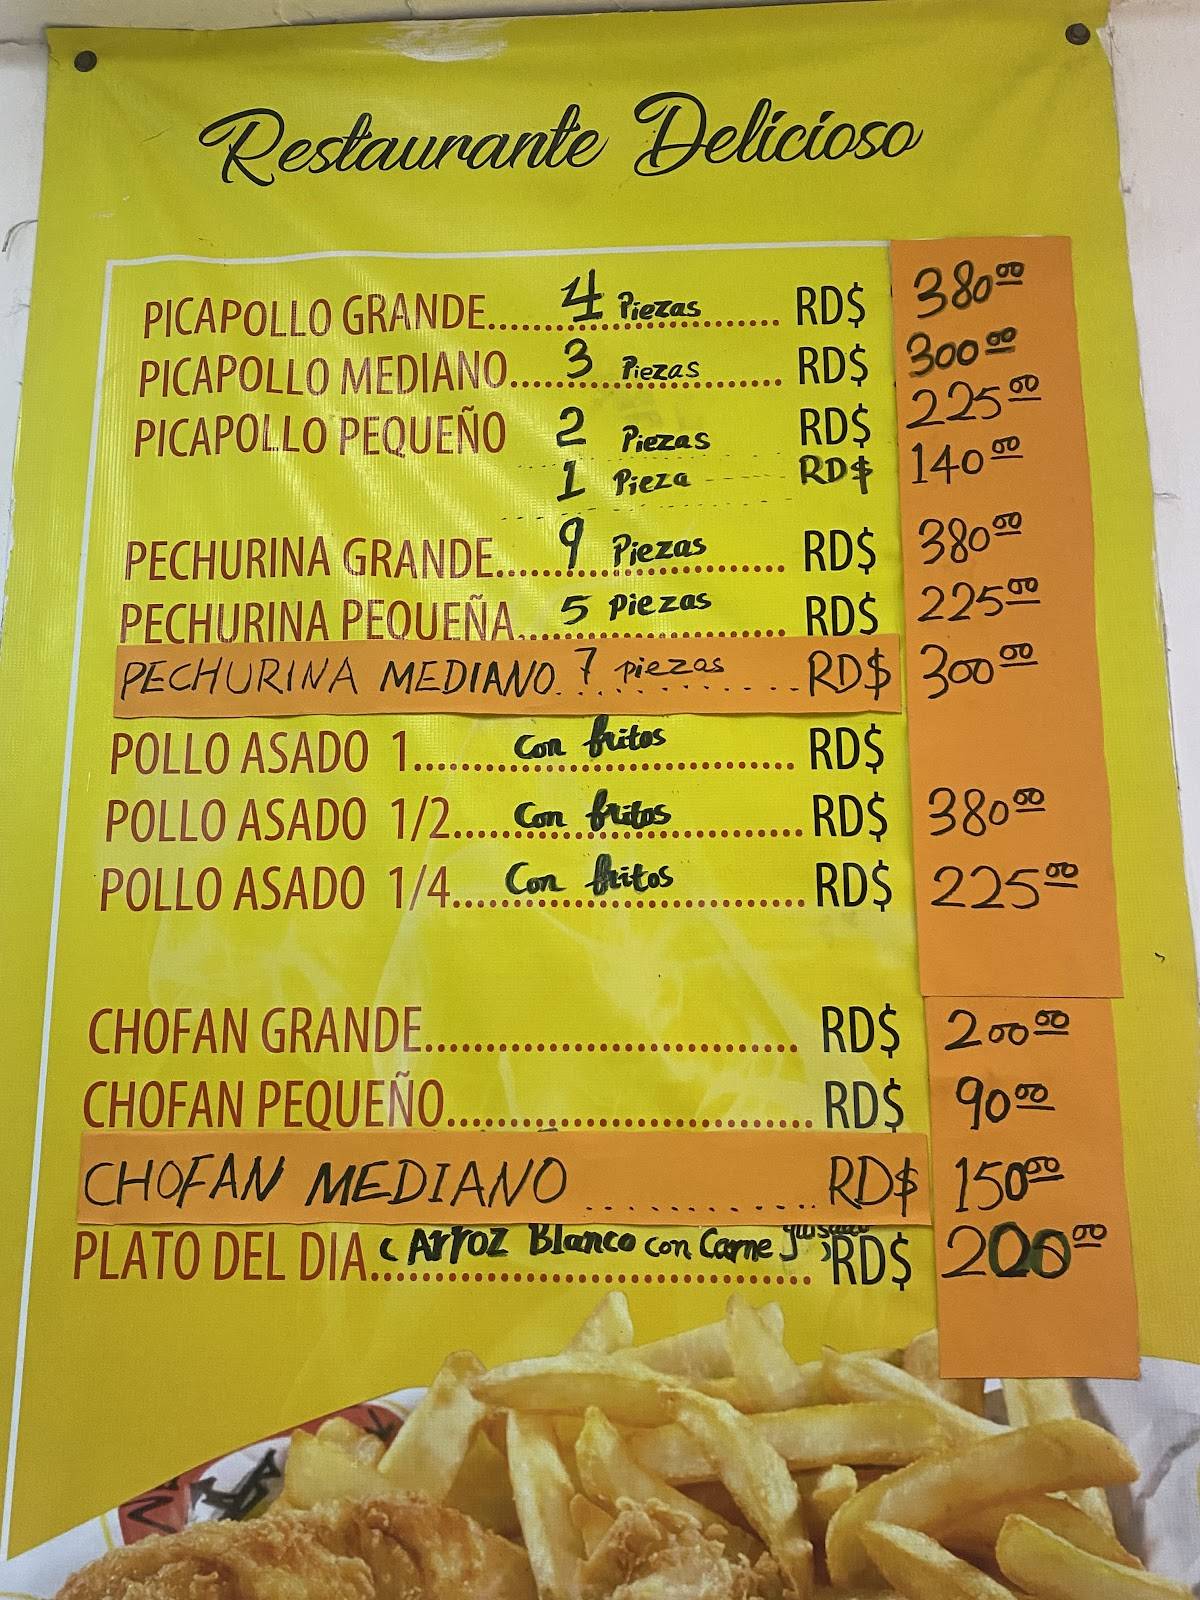 Restaurante Delicioso
PICAPOLLO GRANDE...... 4 Piezas ...... RD$ 380.00
PICAPOLLO MEDIANO...... 3 Piezas ...... RD$ 300.00
PICAPOLLO PEQUEÑO 2 Piezas RD$ 225.00
1 Pieza ------ RD$ 140.00
PECHURINA GRANDE...... 9 Piezas ...... RD$ 380.00
PECHURINA PEQUEÑA...... 5 Piezas ...... RD$ 225.00
PECHURINA MEDIANO. 7 piezas ...... RD$ 300.00
POLLO ASADO 1...... con fritos ...... RD$
POLLO ASADO 1/2...... con fritos ...... RD$ 380.00
POLLO ASADO 1/4...... Con fritos ...... RD$ 225.00
CHOFAN GRANDE...... RD$ 200.00
CHOFAN PEQUEÑO...... RD$ 90.00
CHOFAN MEDIANO ...... RD$ 150.00
PLATO DEL DIA (Arroz Blanco con Carne guisada) RD$ 200.00